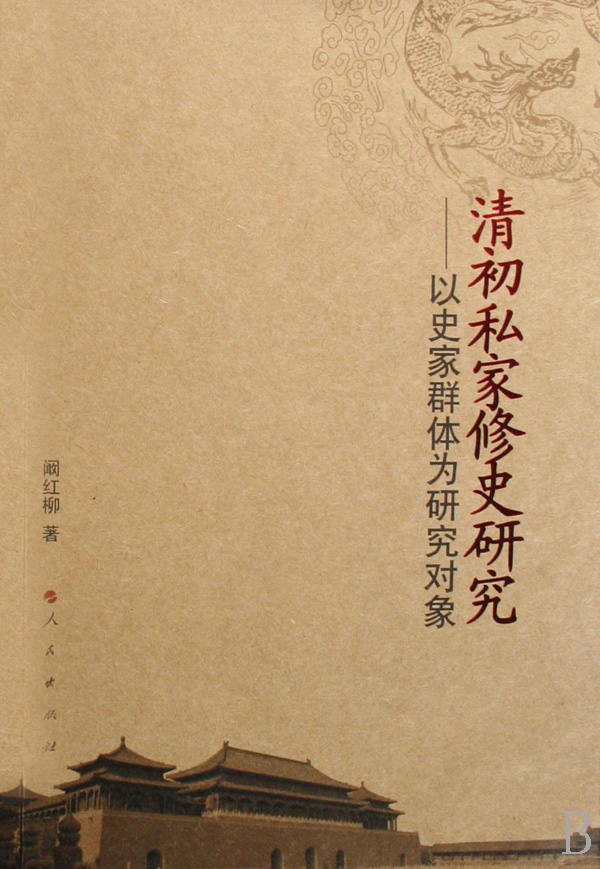 清初私家修史研究
——以史家群体为研究对象
阚红柳 著
人民出版社
B